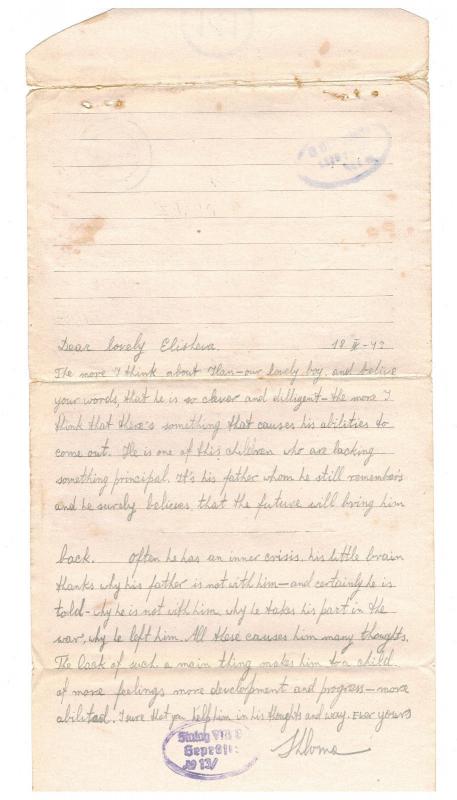 Dear lovely Elisheva. 18 II - 43
The more I think about Ilan - our lovely boy, and belive
your words, that he is so clever and dilligent - the more I
think that there's something that causes his abilities to
come out. He is one of this children who are lacking
something principal. It's his father whom he still remembers
and he surely believes, that the future will bring him
back. Often he has an inner crisis, his little brain
thanks why his father is not with him - and certainly he is
told - why he is not with him, why he takes his part in the
war, why he left him. All these causes him many thoughts.
The lack of such a main thing makes him to a child
of more feelings more development and progress - more
abilited. I sure that you help him in his thoughts and way. Ever yours
Shlomo
Stalag VIII B
Geprüft:
No 13/